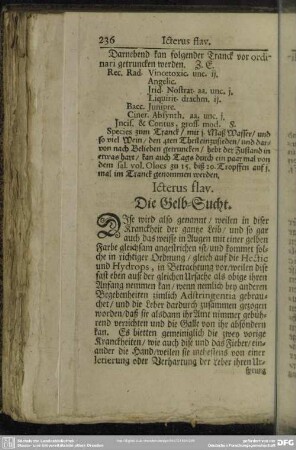 236 Icterus flav.
Darnebend kan folgender Tranck vor ordi-
nari getruncken werden. Z. E.
Rec. Rad. Vincetoxic. unc. ij.
Angelic.
Irid. Nostrat. aa. unc. j.
Liquirit. drachm. ij.
Bacc. Junipre.
Ciner. Absynth. aa. unc. j.
Incis. & Contus, gross. mod. S.
Species zum Tranck/ mit j. Maß Wasser/ und
so viel Wein/ den 4ten Theil einzusieden/ und dar-
von nach Belieben getruncken/ hebt der Zustand in
etwas hart/ kan auch Tags durch ein paar mal von
dem sal. vol. Oleos zu 15. biß 20. Tropffen auf j.
mal im Tranck genommen werden.
Icterus flav.
Die Gelb-Sucht.
DIse wird also genannt/ weilen in diser
Kranckheit der gantze Leib/ und so gar
auch das weisse in Augen mit einer gelben
Farbe gleichsam angestrichen ist/ und kommet sol-
che in richtiger Ordnung/ gleich auf die Hectic
und Hydrops, in Betrachtung vor/ weilen dise
fast eben auf der gleichen Ursache als obige ihren
Anfang nemmen kan/ wenn nemlich bey anderen
Begebenheiten zimlich Adstringentia gebrau-
chet/ und die Leber dardurch zusammen gezogen
worden/ daß sie alsdann ihr Amt nimmer gebüh-
rend verrichten und die Gall von ihr absöndern
kan. Es bietten gemeiniglich die zwey vorige
Kranckheiten/ wie auch dise und das Fieber/ ein-
ander die Hand/ weilen sie meistens von einer
Ictierung oder Verhartung der Leber ihren Ur-
sprung